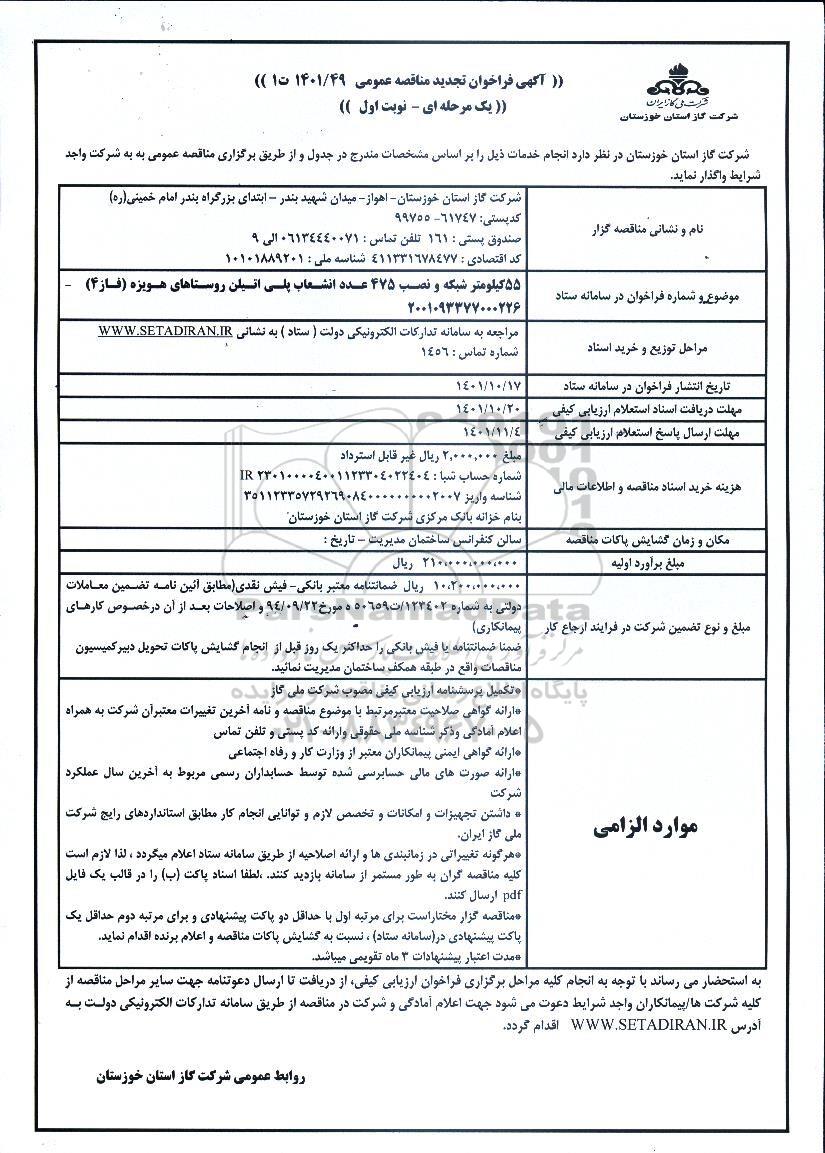 (( آگهی فراخوان تجدید مناقصه عمومی ۱۴۰۱/۴۹ ت۱ ))
(( یک مرحله ای - نوبت اول ))
شرکت ملی گاز ایران
شرکت گاز استان خوزستان
شرکت گاز استان خوزستان در نظر دارد انجام خدمات ذیل را بر اساس مشخصات مندرج در جدول و از طریق برگزاری مناقصه عمومی به به شرکت واجد
شرایط واگذار نماید.
نام و نشانی مناقصه گزار
شرکت گاز استان خوزستان- اهواز- میدان شهید بندر – ابتدای بزرگراه بندر امام خمینی(ره)
کدپستی: ۶۱۷۴۷- ۹۹۷۵۵
صندوق پستی : ۱۶۱ تلفن تماس : ۰۶۱۳۴۴۴۰۰۷۱ الی ۹
کد اقتصادی : ۴۱۱۳۳۱۶۷۸۴۷۷ شناسه ملی : ۱۰۱۰۱۸۸۹۲۰۱
موضوع و شماره فراخوان در سامانه ستاد
۵۵کیلومتر شبکه و نصب ۴۷۵ عدد انشعاب پلی اتیلن روستاهای هویزه (فاز۴) -
۲۰۰۱۰۹۳۳۷۷۰۰۰۲۲۶
مراحل توزیع و خرید اسناد
مراجعه به سامانه تدارکات الکترونیکی دولت ( ستاد ) به نشانی WWW.SETADIRAN.IR
شماره تماس : ۱۴۵۶
تاریخ انتشار فراخوان در سامانه ستاد
۱۴۰۱/۱۰/۱۷
مهلت دریافت اسناد استعلام ارزیابی کیفی
۱۴۰۱/۱۰/۲۰
مهلت ارسال پاسخ استعلام ارزیابی کیفی
۱۴۰۱/۱۱/۴
هزینه خرید اسناد مناقصه و اطلاعات مالی
مبلغ ۲,۰۰۰,۰۰۰ ریال غیر قابل استرداد
شماره حساب شبا : IR ۲۳۰۱۰۰۰۰۴۰۰۱۱۲۳۳۰۴۰۲۲۴۰۴
شناسه واریز ۳۵۱۱۲۳۳۵۷۲۹۲۶۹۰۸۴۰۰۰۰۰۰۰۰۰۲۰۰۷
بنام خزانه بانک مرکزی شرکت گاز استان خوزستان
مکان و زمان گشایش پاکات مناقصه
سالن کنفرانس ساختمان مدیریت – تاریخ :
مبلغ برآورد اولیه
۲۱۰،۰۰۰،۰۰۰،۰۰۰ ریال
مبلغ و نوع تضمین شرکت در فرایند ارجاع کار
۱۰،۲۰۰،۰۰۰،۰۰۰ ریال ضمانتنامه معتبر بانکی- فیش نقدی(مطابق آئین نامه تضمین معاملات
دولتی به شماره ۱۲۳۴۰۲/ت۵۰۶۵۹ ه مورخ۹۴/۰۹/۲۲ و اصلاحات بعد از آن درخصوص کارهای
پیمانکاری)
ضمنا ضمانتنامه یا فیش بانکی را حداکثر یک روز قبل از انجام گشایش پاکات تحویل دبیرکمیسیون
مناقصات واقع در طبقه همکف ساختمان مدیریت نمائید.
موارد الزامی
*تکمیل پرسشنامه ارزیابی کیفی مصوب شرکت ملی گاز
*ارائه گواهی صلاحیت معتبرمرتبط با موضوع مناقصه و نامه آخرین تغییرات معتبرآن شرکت به همراه
اعلام آمادگی وذکر شناسه ملی حقوقی وارائه کد پستی و تلفن تماس
*ارائه گواهی ایمنی پیمانکاران معتبر از وزارت کار و رفاه اجتماعی
*ارائه صورت های مالی حسابرسی شده توسط حسابداران رسمی مربوط به آخرین سال عملکرد
شرکت
* داشتن تجهیزات و امکانات و تخصص لازم و توانایی انجام کار مطابق استانداردهای رایج شرکت
ملی گاز ایران.
*هرگونه تغییراتی در زمانبندی ها و ارائه اصلاحیه از طریق سامانه ستاد اعلام میگردد ، لذا لازم است
کلیه مناقصه گران به طور مستمر از سامانه بازدید کنند. ،لطفا اسناد پاکت (ب) را در قالب یک فایل
pdf ارسال کنند.
*مناقصه گزار مختاراست برای مرتبه اول با حداقل دو پاکت پیشنهادی و برای مرتبه دوم حداقل یک
پاکت پیشنهادی در(سامانه ستاد) ، نسبت به گشایش پاکات مناقصه و اعلام برنده اقدام نماید.
*مدت اعتبار پیشنهادات ۳ ماه تقویمی میباشد.
به استحضار می رساند با توجه به انجام کلیه مراحل برگزاری فراخوان ارزیابی کیفی، از دریافت تا ارسال دعوتنامه جهت سایر مراحل مناقصه از
کلیه شرکت ها/پیمانکاران واجد شرایط دعوت می شود جهت اعلام آمادگی و شرکت در مناقصه از طریق سامانه تدارکات الکتریکی دولت به
آدرس WWW.SETADIRAN.IR اقدام گردد.
روابط عمومی شرکت گاز استان خوزستان